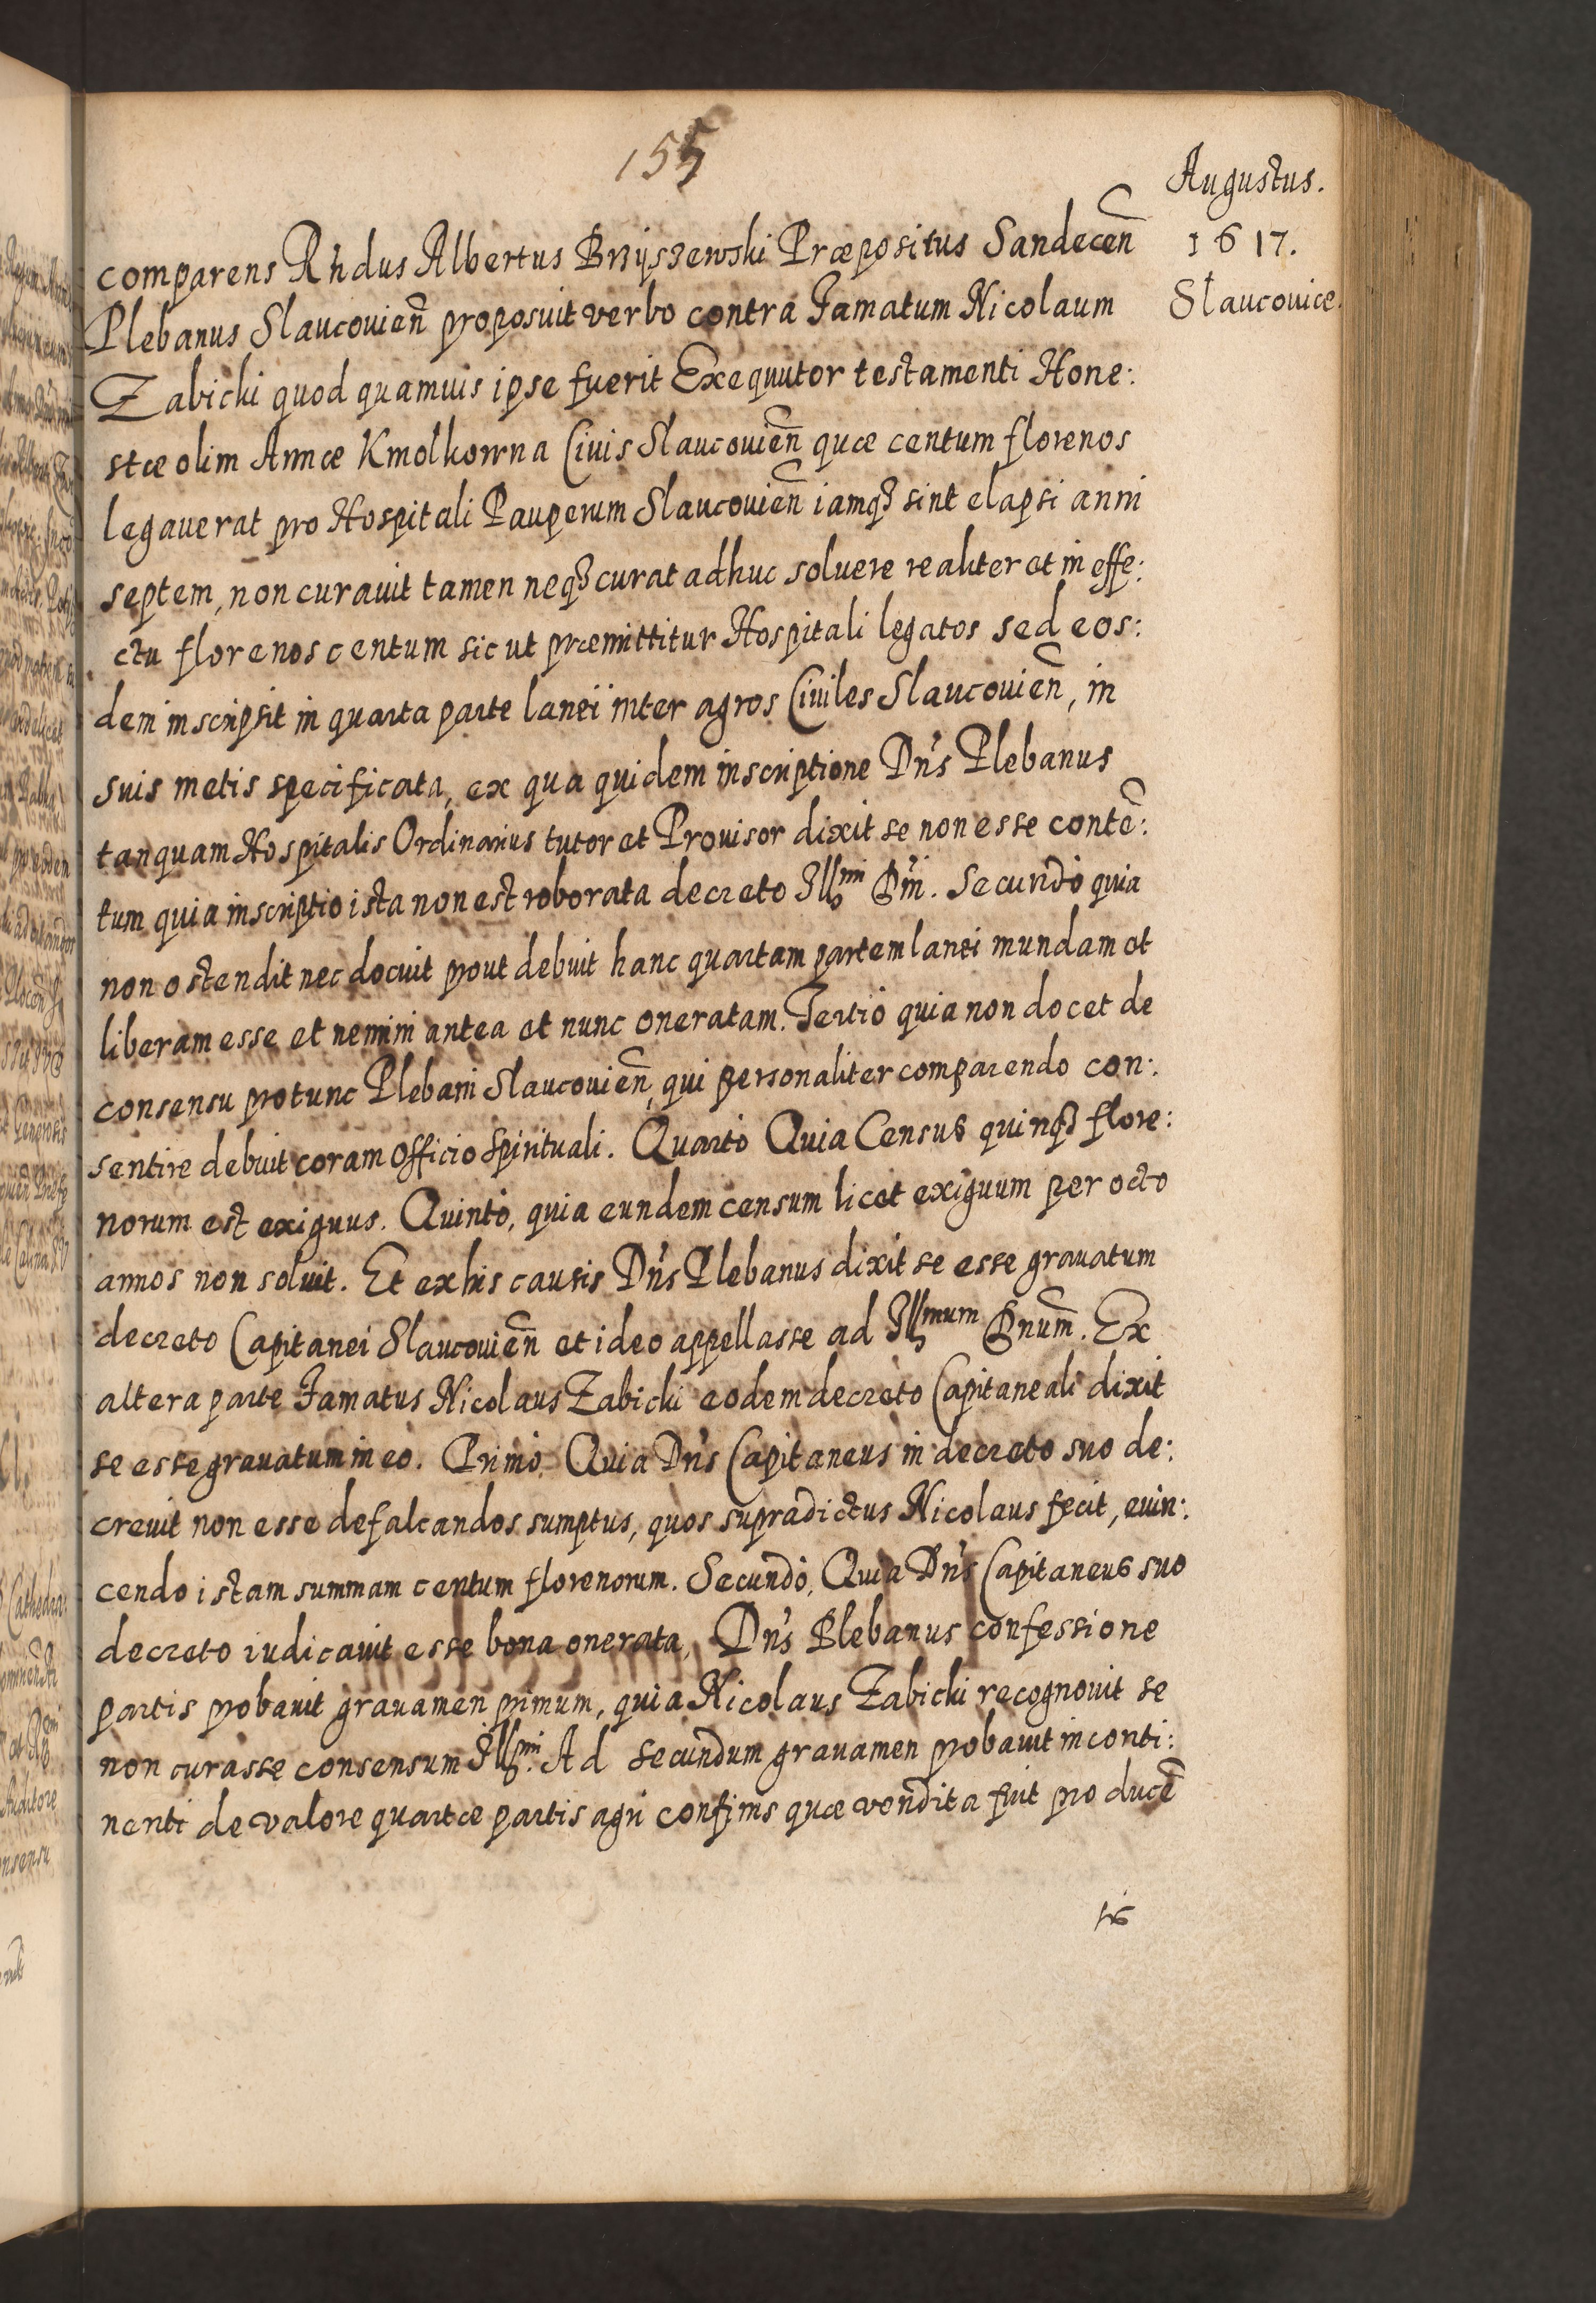 155
Augustus.
1617.
Slaucouiæ.
comparens Rńdus Albertus Brzÿszewski Præpositus Sandeceñ
Plebanus Slaucouieñ proposuit verbo contra Famatum Nicolaum
Zabicki quod quamuis ipse fuerit Exequutor testamenti Hone:
stæ olim Annæ Kmolkowna Ciuis Slaucouieñ quæ centum florenos
legauerat pro Hospitali Pauperum Slaucouieñ iamqꝫ sint elapsi anni
septem, non curauit tamen neqꝫ curat adhuc soluere realiter et in effe:
ctu florenos centum sic ut præmittitur Hospitali legatos sed eos:
dem inscripsit in quarta parte laneï inter agros Ciuiles Slaucouieñ, in
suis metis specificata, ex qua quidem inscriptione Dńs Plebanus
tanquam Hospitalis Ordinarius tutor et Prouisor dixit se non esse contẽ:
tum quia inscriptio ista non est roborata decreto Illmi Dńi. Secundò quia
non ostendit nec docuit prout debuit hanc quartam partem lanei mundam et
liberam esse et nemini antea et nunc oneratam. Tertiò quia non docet de
consensu protunc Plebani Slaucouieñ, qui personaliter comparendo con:
sentire debuit coram Officio Spirituali. Quartò Quia Census quinqꝫ flore:
norum est exiguus. Quintò, quia eundem censum licet exiguum per octo
annos non soluit. Et ex his causis Dńs Plebanus dixit se esse grauatum
decreto Capitanei Slaucouieñ et ideo appellasse ad Illmum Dnum̃. Ex
altera parte Famatus Nicolaus Zabicki eodem decreto Capitaneali dixit
se esse grauatum in eo. Primò Quia Dńs Capitaneus in decreto suo de:
creuit non esse defalcandos sumptus, quos supradictus Nicolaus fecit, euin:
cendo istam summam centum florenorum. Secundò, Quia Dńs Capitaneus suo
decreto iudicauit esse bona onerata, Dńs Plebanus confessione
partis probauit grauamen primum, quia Nicolaus Zabicki recognouit se
non curasse consensum Illmi. Ad secundum grauamen probauit inconti:
nenti de valore quartæ partis agri confinis quæ vendita fuit pro ducẽ
tis